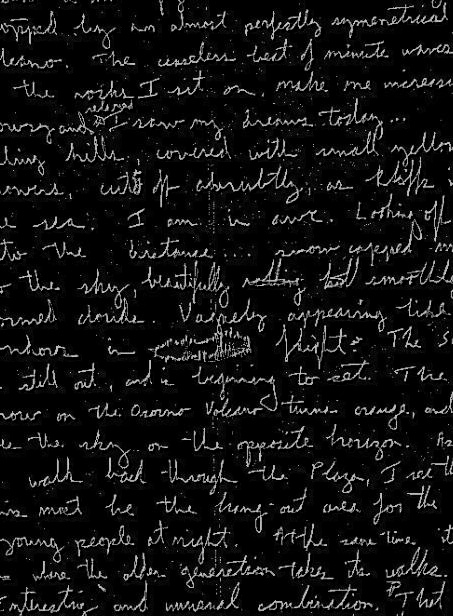 topped by an almost perfectly symmetrical
The ceaseless beat of minute waves
the rocks I sit on, make me increasi
relaxed
owsy and I saw my dreams today...
ling hills, covered with small yellow
owers, cuts off abrubtly, as kliffs i
e sea. I am in awe. Looking off
to the distance.... snow capped m
o the sky beautifully smoothle
ormed clouds. Vaguely appearing like
in flight. The s
still out, and is beginning to set. The
now on the Osorno Volcano turns orange, and
the sky on the opposite horizon. As
walk back through the Plaza, I see th
is must be the hang-out area for the
young people at night. At the same time it
where the older generation takes its walks.
Interesting and unusual combination. That